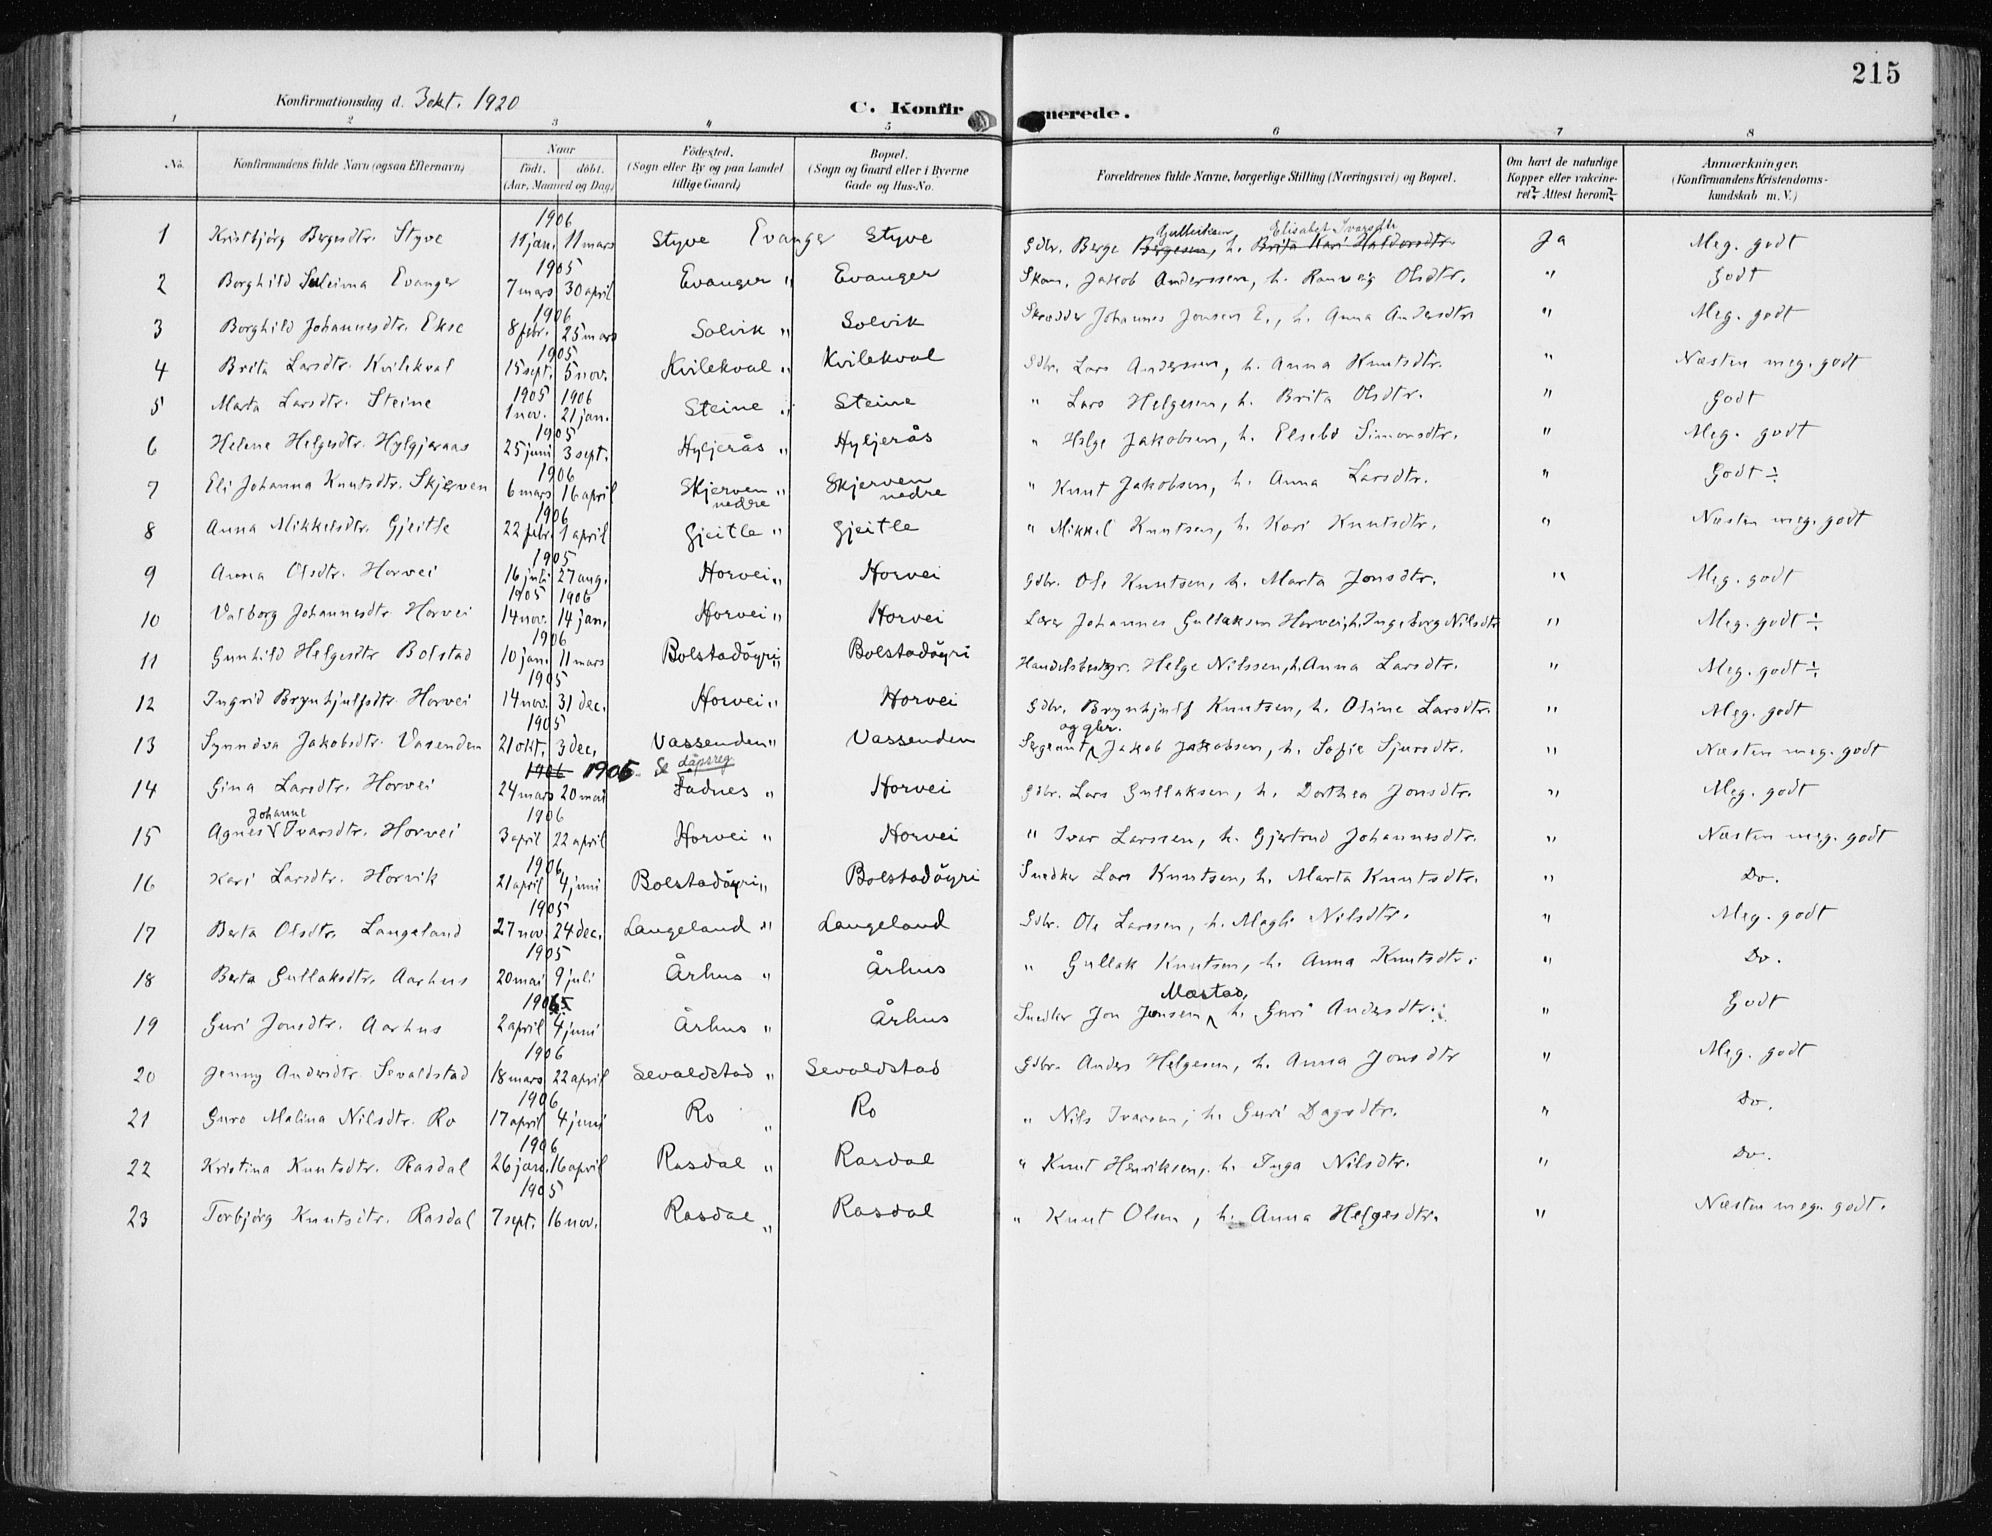 215
Konfirmationsdag d. 3 okt. 1920
C. Konfirmerede.
1 2 3 4 5 6 7 8
No. Konfirmandens fulde Navn (ogsaa Efternavn) Naar født. døbt. (Aar, Maaned og Dag) Fødested. (Sogn eller By og paa Landet tillige Gaard) Bopæl. (Sogn og Gaard eller i Byerne Gade og Hus-No. Forældrenes fulde Navne, borgerlige Stilling (Næringsvei) og Bopæl. Om havt de naturlige Kopper eller vakcineret? Attest herom? Anmærkninger. (Konfirmandens Kristendomskundskab m. V.)
1906 Elisabet Ivarsdtr.
1 Kristbjörg Bergesdtr. Styve 11 jan. 11 mars Styve Evanger Styve Gdbr. Berge Bergesen, h. Brita Kari Haldorsdtr. Ja Meg. godt
1905
2 Borghild Evanger 7 mars 30 april Evanger " Evanger Skom. Jakob Anderssen, h. Ranveig Olsdtr. " Godt
1906
3 Borghild Johannesdtr. Ekse 8 febr. 25 mars Solvik " Solvik Skrædder Johannes Jonsen E., h. Anna Andersdtr. " Meg. godt
1905
4 Brita Larsdtr. Kvilekval 15 sept. 5 nov. Kvilekval " Kvilekval Gdbr. Lars Anderssen, h. Anna Knutsdtr. " Næsten meg. godt
1905 1906
5 Marta Larsdtr. Steine 1 nov. 21 jan. Steine " Steine " Lars Helgesen, h. Brita Olsdtr. " Godt
1905
6 Helene Helgesdtr. Hylgjeraas 25 juni 3 sept. Hyljerås " Hyljerås " Helge Jakobsen, h. Elsebö Simonsdtr. " Meg. godt
1906
7 Eli Johanna Knutsdtr. Skjerven 6 mars 16 april Skjerven nedre " Skjerven nedre " Knut Jakobsen, h. Anna Larsdtr. " Godt ÷
1906
8 Anna Mikkelsdtr. Gjeitle 22 febr. 1 april Gjeitle " Gjeitle " Mikkel Knutsen, h. Kari Knutsdtr. " Næsten meg. godt
1905
9 Anna Olsdtr. Horvei 16 juli 27 aug. Horvei " Horvei Gdbr. Ole Knutsen, h. Marta Jonsdtr. " Meg. godt
1905 1906
10 Valborg Johannesdtr. Horvei 14 nov. 14 jan. Horvei " Horvei Lærer Johannes Gullaksen Horvei, h. Ingeborg Nilsdtr " Meg. godt ÷
1906
11 Gunhild Helgesdtr Bolstad 10 jan. 11 mars Bolstadöyri " Bolstadöyri Handelsbestyr. Helge Nilssen, h. Anna Larsdtr. " Meg. godt ÷
1905
12 Ingrid Brynhjulfsdtr. Horvei 14 nov. 31 dec. Horvei " Horvei Gdbr. Brynhjulf Knutsen, h. Oline Larsdtr. " Meg. godt
1905 og gbr.
13 Synnöva Jakobsdtr. Vasenden 21 okt. 3 dec. Vassenden " Vassenden Sergeant Jakob Jakobsen, h. Sofie Sjursdtr. " Næsten meg. godt
1906 1905 Se dåpsreg.
14 Gina Larsdtr. Horvei 24 mars 20 mai Fadnes " Horvei Gdbr. Lars Gullaksen, h. Dorthea Jonsdtr. " Meg. godt
Johanne 1906
15 Agnes Ivarsdtr. Horvei 3 april 22 april Horvei " Horvei " Ivar Larssen, h. Gjertrud Johannesdtr. " Næsten meg. godt
1906
16 Kari Larsdtr. Horvik 21 april 4 juni Bolstadöyri " Bolstadöyri Snedker Lars Knutsen, h. Marta Knutsdtr. " Do.
1905
17 Berta Olsdtr. Langeland 27 nov 24 dec. Langeland " Langeland Gdbr. Ole Larssen, h. Magli Nilsdtr. " Meg. godt
1905
18 Berta Gullaksdtr. Aarhus 20 mai 9 juli Århus " Århus " Gullak Knutsen, h. Anna Knutsdtr. " Do.
1905 Mæstad,
19 Guri Jonsdtr. Aarhus 2 april 4 juni Århus " Århus Snedker Jon Jonsen h. Guri Andersdtr. " Godt
1906
20 Jenny Andersdtr. Sevaldstad 18 mars 22 april Sevaldstad " Sevoldstad Gdbr. Anders Helgesen, h. Anna Jonsdtr " Meg. godt
1906
21 Guro Malina Nilsdtr. Ro 17 april 4 juni Ro " Ro " Nils Ivarsen, h. Guri Dagsdtr. " Do.
1906
22 Kristina Knutsdtr. Rasdal 26 jan. 16 april Rasdal " Rasdal " Knut Henriksen, h. Inga Nilsdtr. " Do.
1905
23 Torbjörg Knutsdtr. Rasdal 7 sept. 16 nov. Rasdal " Rasdal " Knut Olsen, h. Anna Helgesdtr. " Næsten meg. godt.